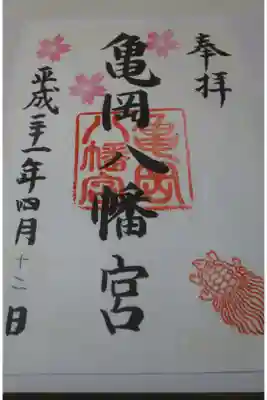 奉拝
亀岡八幡宮
亀岡
八幡宮
平成三十一年四月十二日